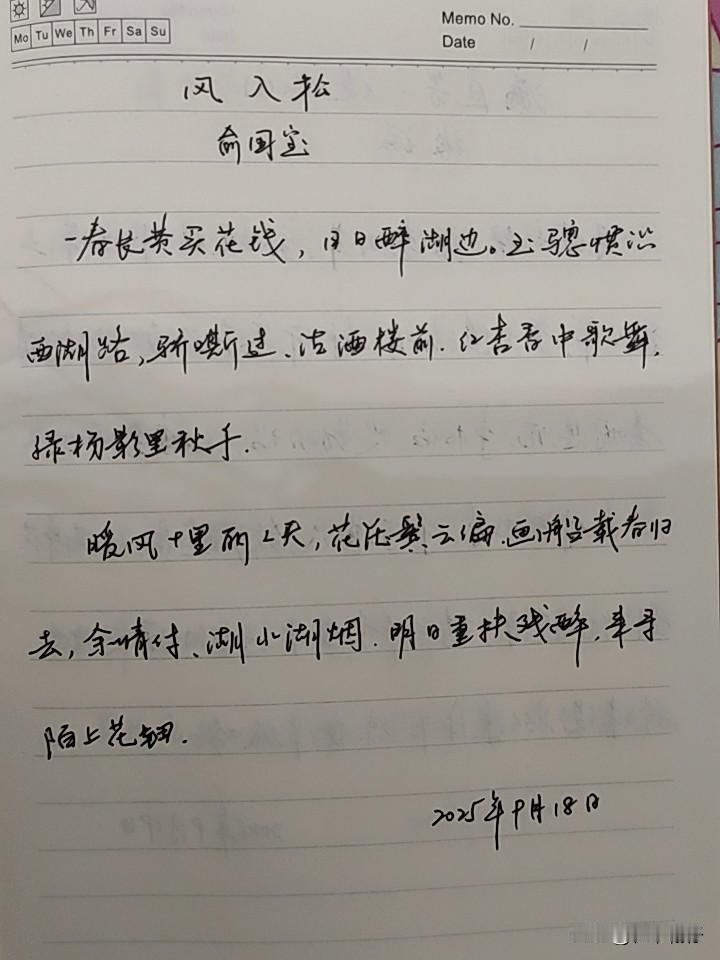 Mo Tu We Th Fr Sa Su
Memo No.
Date / /
风入松
俞国宝
一春长费买花钱，日日醉湖边。玉骢惯识
西湖路，骄嘶过、沽酒楼前.红杏香中歌舞.
绿杨影里秋千.
暖风十里丽人天，花压鬓云偏.画船载春归
去，余情付、湖水湖烟.明日重扶残醉.来寻
陌上花钿.
2025年9月18日